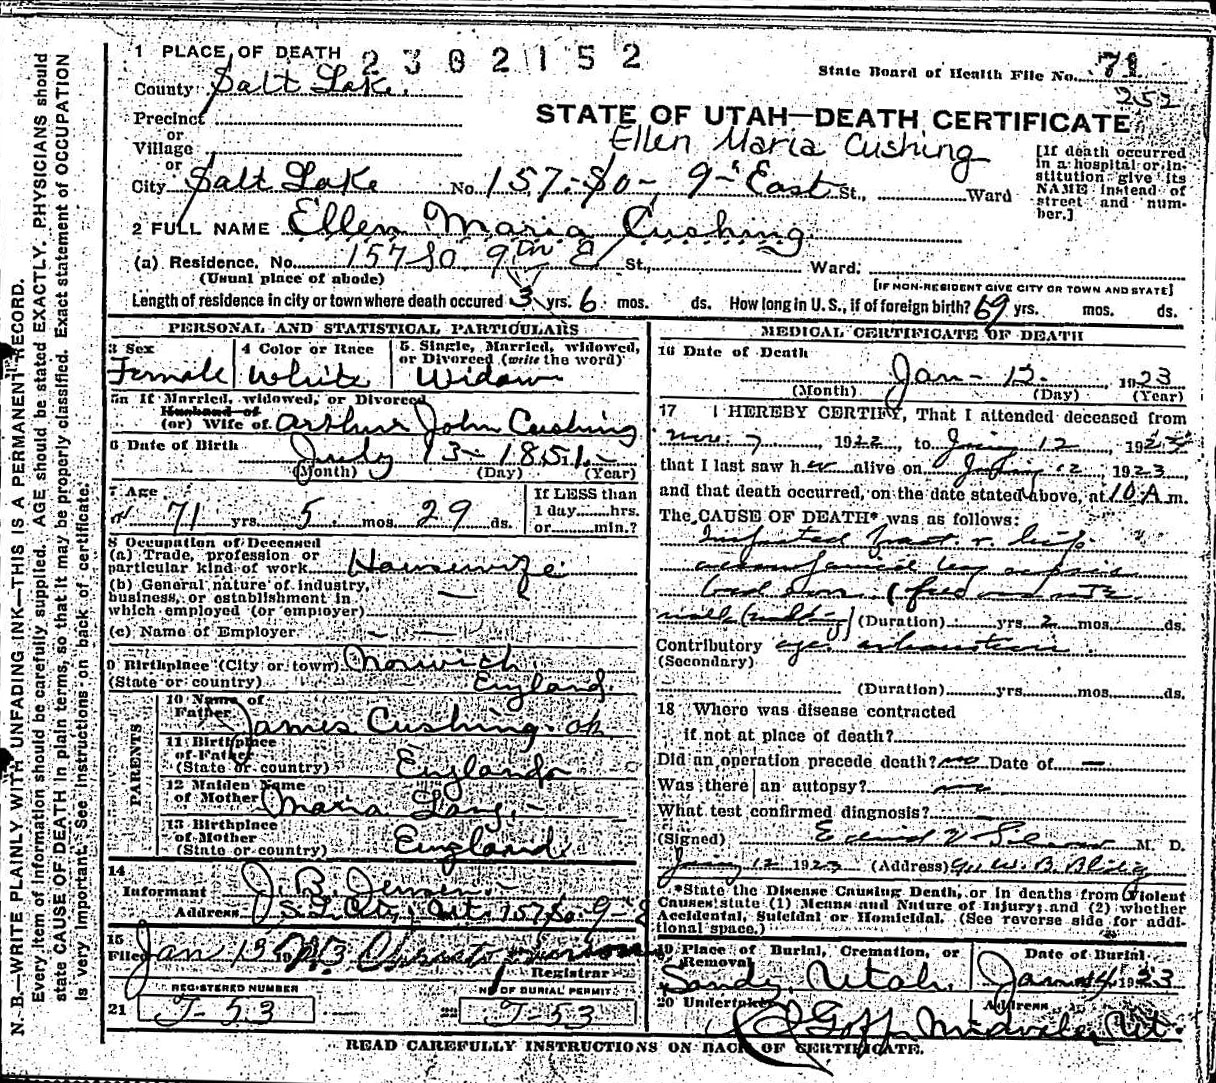 1 PLACE OF DEATH 2302152
County Salt Lake.
State Board of Health File No. 71
252
Precinct
or
Village
or
STATE OF UTAH—DEATH CERTIFICATE
Ellen Maria Cushing
[If death occurred in a hospital or institution give its NAME instead of street and number.]
City Salt Lake No. 157-So- 9- East St., Ward
2 FULL NAME Ellen Maria Cushing
(a) Residence, No. 157 So. 9th E St., Ward.
(Usual place of abode)
[IF NON-RESIDENT GIVE CITY OR TOWN AND STATE]
Length of residence in city or town where death occured 3 yrs. 6 mos. ds. How long in U. S., if of foreign birth? 69 yrs. mos. ds.
PERSONAL AND STATISTICAL PARTICULARS
3 Sex Female
4 Color or Race White
5. Single, Married, widowed, or Divorced (write the word) Widow
5a If Married, widowed, or Divorced
Husband of
(or) Wife of Arthur John Cushing
6 Date of Birth July 13- 1851-
(Month) (Day) (Year)
7 Age 71 yrs. 5 mos. 29 ds.
If LESS than
1 day hrs.
or min.?
8 Occupation of Deceased
(a) Trade, profession or
particular kind of work Housewife
(b) General nature of industry,
business, or establishment in
which employed (or employer)
(c) Name of Employer
9 Birthplace (City or town) Norwich
(State or country) England
PARENTS
10 Name of
Father James Cushing
11 Birthplace
of Father
(State or country) England
12 Maiden Name
of Mother Maria Lang
13 Birthplace
of Mother
(State or country) England
14
Informant J. B. Jensen
Address S. L. City, Ut. 157 So. 9- E
15
Filed Jan 13 1923
Registrar
REGISTERED NUMBER
21 J-53
NO OF BURIAL PERMIT
22 J-53
MEDICAL CERTIFICATE OF DEATH
16 Date of Death
Jan- 12. 1923
(Month) (Day) (Year)
17 I HEREBY CERTIFY, That I attended deceased from
Nov. 7, 1922, to Jany 12, 1923
that I last saw her alive on 12 1923,
and that death occurred, on the date stated above, at 10 A m.
The CAUSE OF DEATH* was as follows:
fract. r. hip
(Duration) yrs. 2 mos. ds.
Contributory age exhaustion
(Secondary)
(Duration) yrs. mos. ds.
18 Where was disease contracted
if not at place of death?
Did an operation precede death? no Date of —
Was there an autopsy? no
What test confirmed diagnosis?
(Signed) M. D.
Jany 12 1923 (Address)
*State the Disease Causing Death, or in deaths from Violent Causes state (1) Means and Nature of Injury; and (2) whether Accidental, Suicidal or Homicidal. (See reverse side for additional space.)
19 Place of Burial, Cremation, or
Removal Sandy, Utah.
Date of Burial
Jan 14 1923
20 Undertaker Address
Goff Midvale, Ut.
READ CAREFULLY INSTRUCTIONS ON BACK OF CERTIFICATE.
N. B.—WRITE PLAINLY WITH UNFADING INK—THIS IS A PERMANENT RECORD.
Every item of information should be carefully supplied. AGE should be stated EXACTLY. PHYSICIANS should
state CAUSE OF DEATH in plain terms, so that it may be properly classified. Exact statement of OCCUPATION
is very important. See instructions on back of certificate.